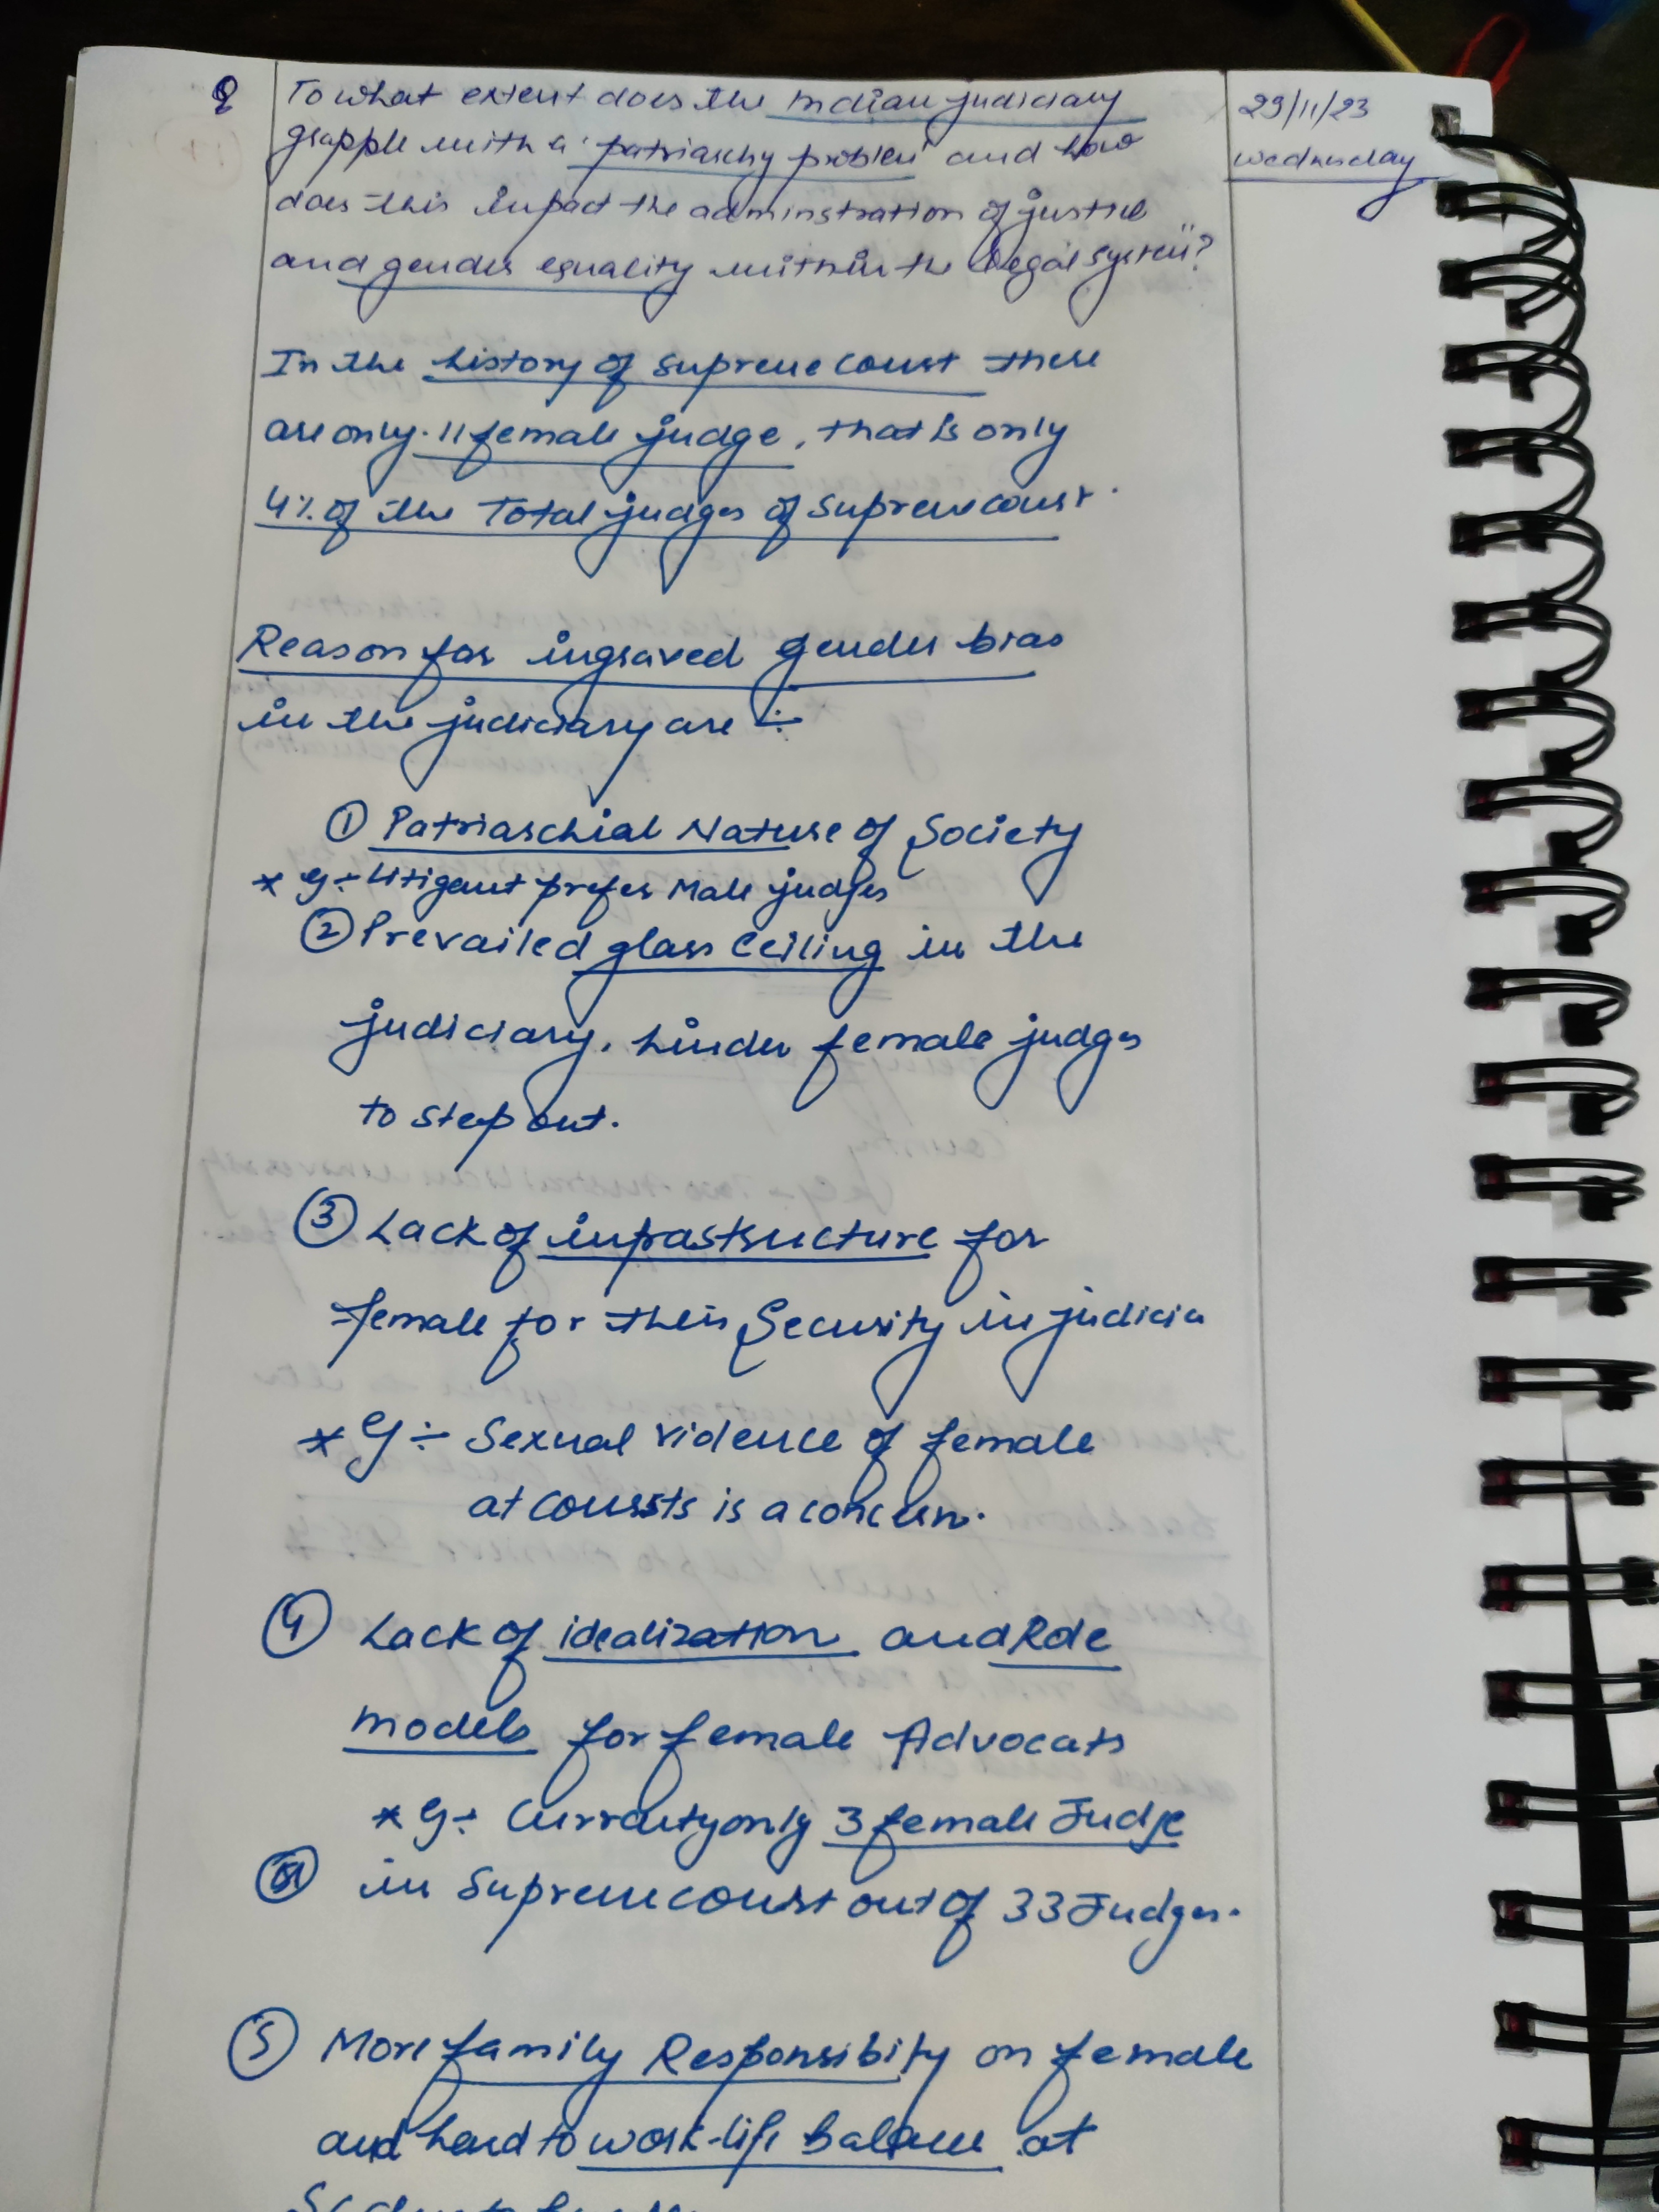 Q To what extent does the Indian judiciary
grapple with a 'patriarchy problem' and how
does this impact the adminstration of justice
and gender equality within the legal system"?
29/11/23
Wednesday
In the history of supreme court there
are only 11 female judge, that is only
4% of the Total judges of supreme court.
Reason for ingraved gender bias
in the judiciary are :-
① Patriarchial Nature of Society
* eg:- Litigant prefer Male judges
② Prevailed glass ceiling in the
judiciary, hinder female judges
to step out.
③ Lack of infrastructure for
female for their Security in judicia
* eg:- Sexual violence of female
at courts is a concern.
④ Lack of idealization and Role
models for female Advocats
* eg:- Currently only 3 female Judge
in Supreme court out of 33 Judges.
⑤ More family Responsibity on female
and hard to work-life balance at